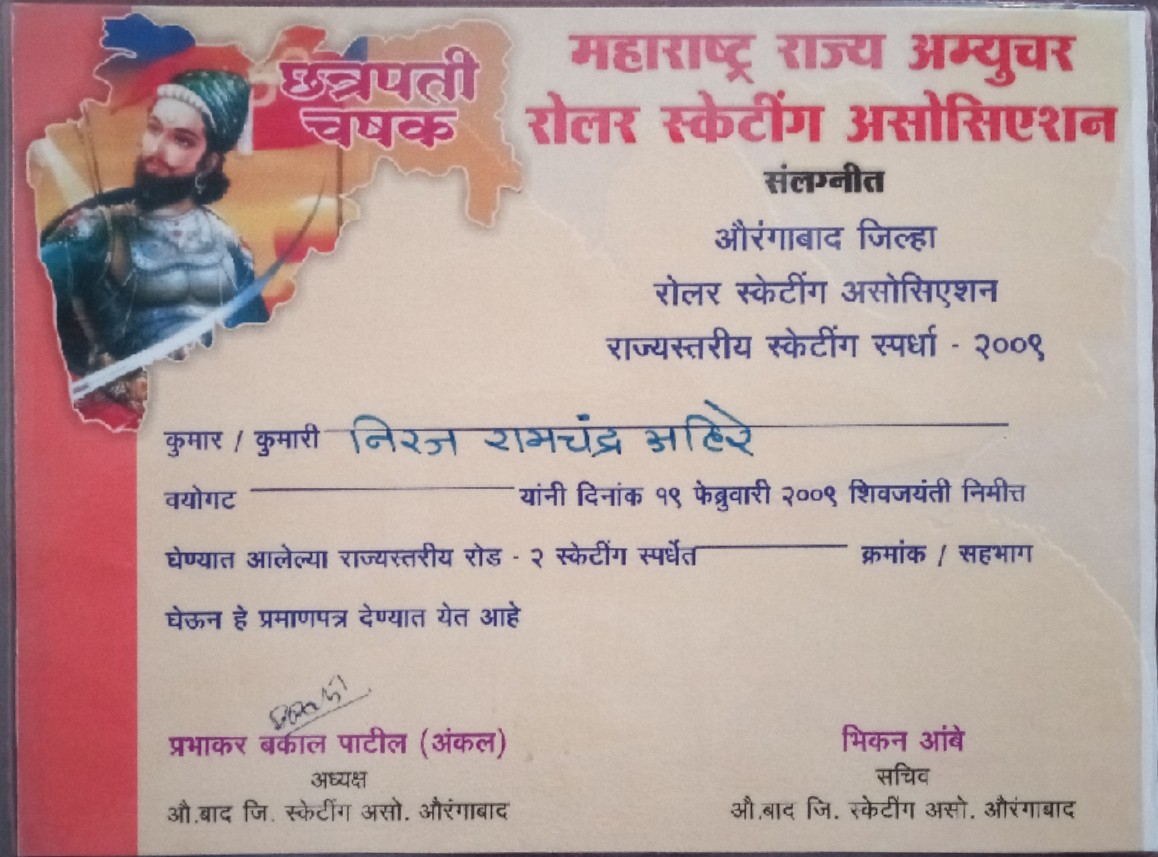 छत्रपती
चषक
महाराष्ट्र राज्य अम्युचर
रोलर स्केटींग असोसिएशन
संलग्नीत
औरंगाबाद जिल्हा
रोलर स्केटींग असोसिएशन
राज्यस्तरीय स्केटींग स्पर्धा - २००९
कुमार / कुमारी निरज रामचंद्र अहिरे
वयोगट यांनी दिनांक १९ फेब्रुवारी २००९ शिवजयंती निमीत्त
घेण्यात आलेल्या राज्यस्तरीय रोड - २ स्केटींग स्पर्धेत क्रमांक / सहभाग
घेऊन हे प्रमाणपत्र देण्यात येत आहे
प्रभाकर बकाल पाटील (अंकल)
अध्यक्ष
औ.बाद जि. स्केटींग असो. औरंगाबाद
भिकन आंबे
सचिव
औ.बाद जि. स्केटींग असो. औरंगाबाद